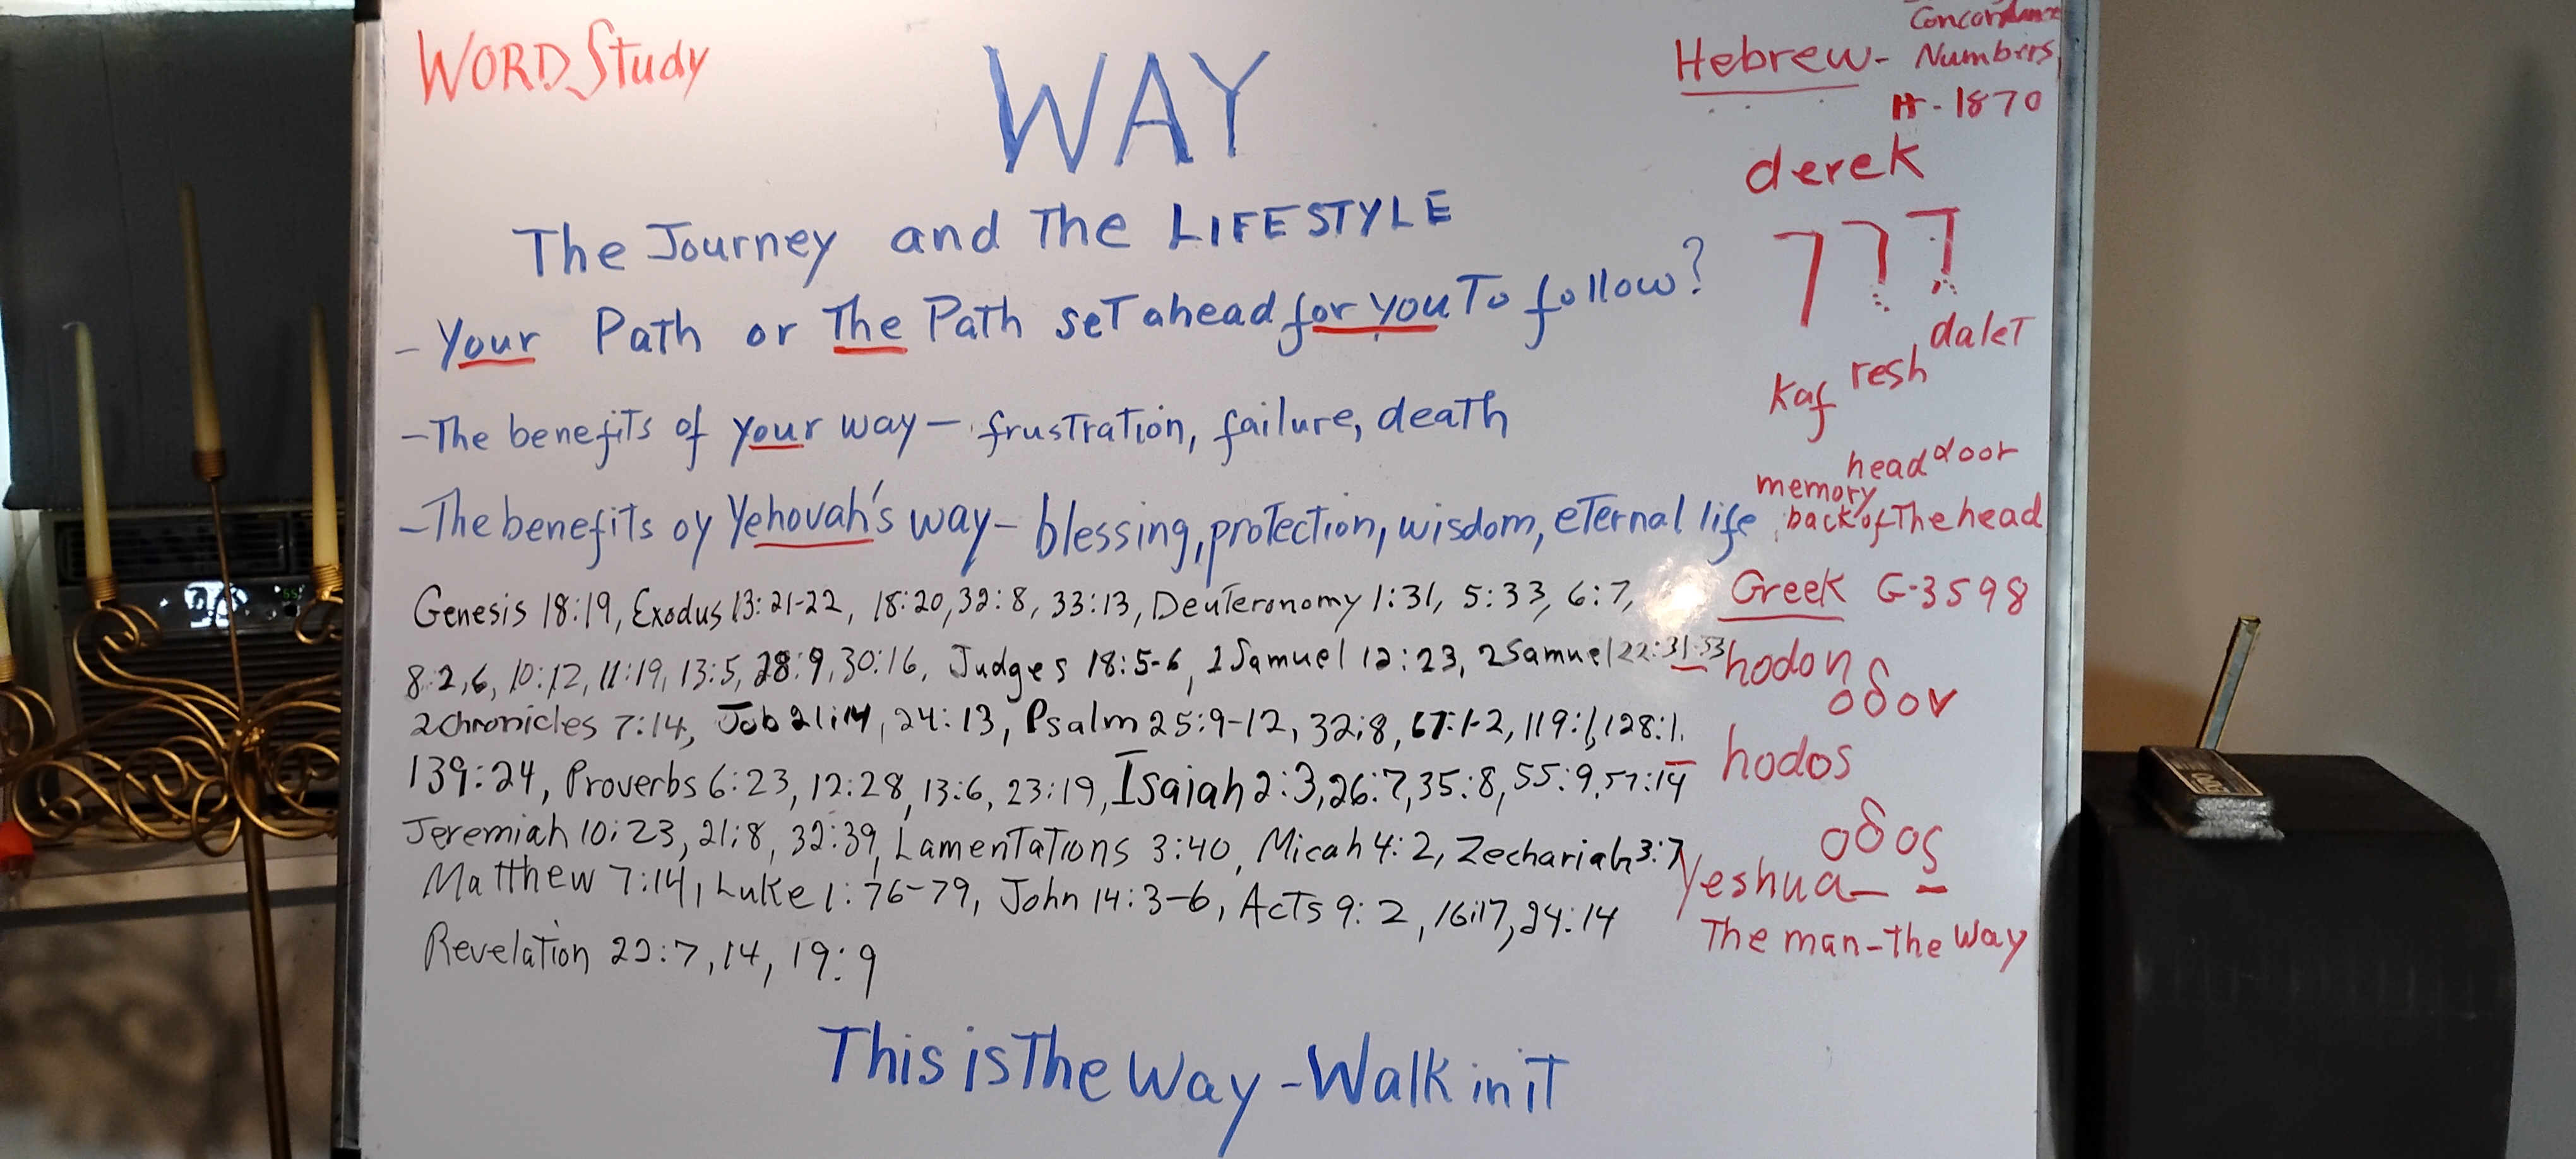 WORD Study
WAY
The Journey and The LIFESTYLE
- Your Path or The Path set ahead for you To follow?
- The benefits of your way - frustration, failure, death
- The benefits oy Yehovah's way - blessing, protection, wisdom, eternal life
Genesis 18:19, Exodus 13:21-22, 18:20, 32:8, 33:13, Deuteronomy 1:31, 5:33, 6:7,
8:2,6, 10:12, 11:19, 13:5, 28:9, 30:16, Judges 18:5-6, 1 Samuel 12:23, 2 Samuel 22:31-33
2 chronicles 7:14, Job 21:14, 24:13, Psalm 25:9-12, 32:8, 67:1-2, 119:1, 128:1,
139:24, Proverbs 6:23, 12:28, 13:6, 23:19, Isaiah 2:3, 26:7, 35:8, 55:9, 57:14
Jeremiah 10:23, 21:8, 32:39, Lamentations 3:40, Micah 4:2, Zechariah 3:7
Matthew 7:14, Luke 1:76-79, John 14:3-6, Acts 9:2, 16:17, 24:14
Revelation 22:7, 14, 19:9
This is The Way - Walk in it
Concordance
Hebrew - Numbers
H-1870
derek
דרך
dalet
resh
kaf
door
head
memory
back of The head
Greek G-3598
hodon
οδον
hodos
οδος
Yeshua -
The man - the Way